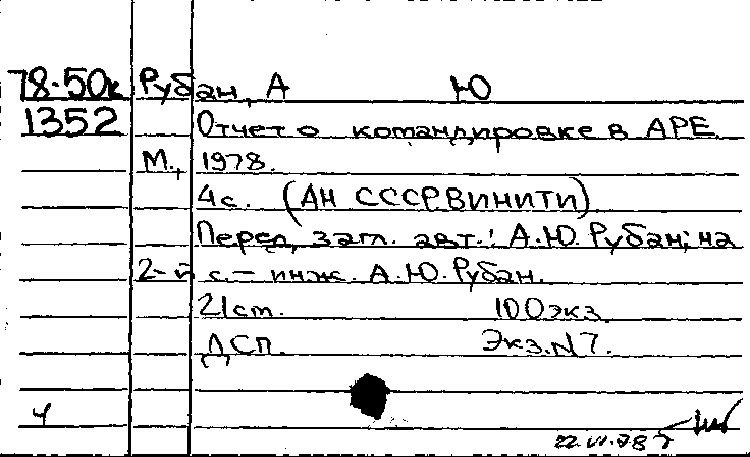 78-50к Рубан, А Ю
1352 Отчет о командировке в АРЕ
М., 1978.
4с. (АН СССР ВИНИТИ)
Перед загл. авт.: А.Ю. Рубан; на
2-й с. – инж. А.Ю. Рубан.
21 ст. 100 экз
ДСП. Экз. N7.
ч
22.VI.78